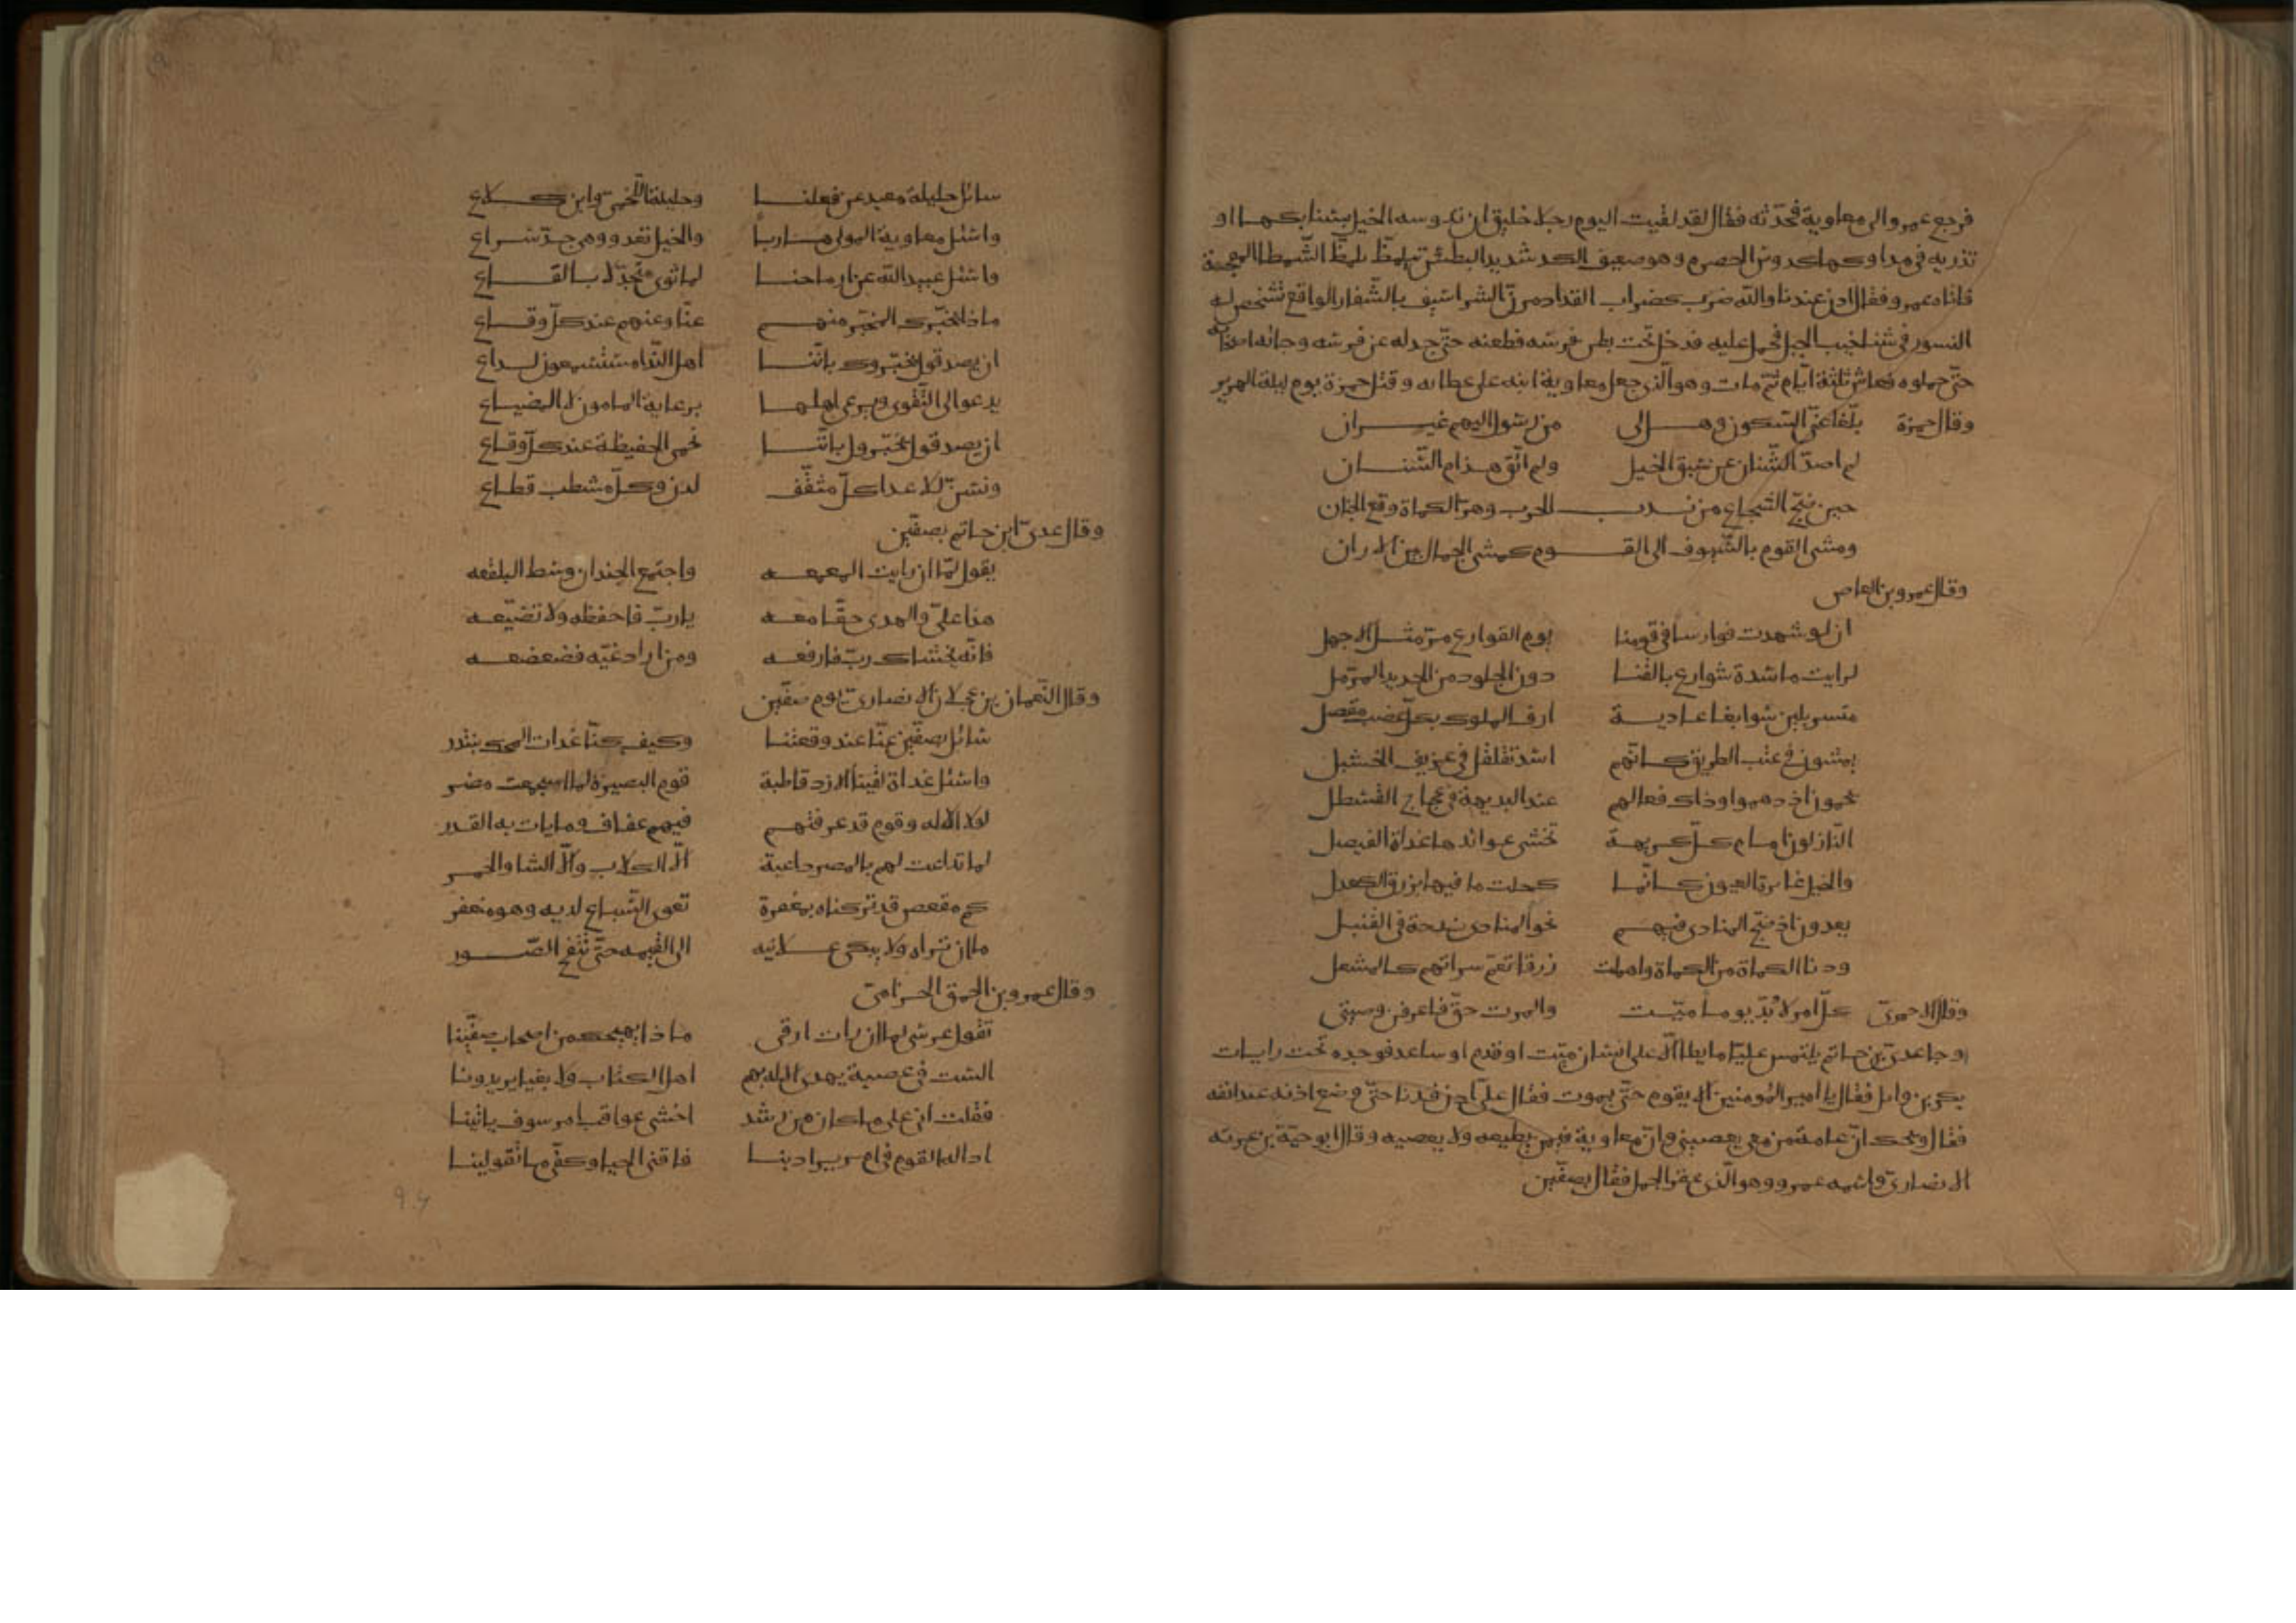 فرجع عمرو الى معاوية فحدّثه فقال لقد لقيت اليوم رجلا خليق ان تدوسه الخيل بسنابكها او
تذريه في مداوكها كدوس الحصرم وهو ضعيف الكد شديد البطش تلمظ الشمطا
فاتاه عمرو فقال ادن عندنا والله ضرب كضراب القدار الشراشيف بالشفار الواقع تشخص له
النسور في فحمل عليه فدخل تحت بطن فرسه فطعنه حتّى جدله عن فرسه وجاءه اصحابه
حتّى حملوه فعاش ثلثة ايّام ثمّ مات وهو الّذى جعل معاوية ابنه على عطايه وقتل حمزة يوم ليلة الهرير
وقال حمزة بلّغا عنّى السّكون وهل لى من رسول اليهم غير ان
لم اصدّ السّنان عن سبق الخيل ولم اتّق هذام السّنان
حين ضجّ الشجاع من ندب الحرب وهرّ الكماة وقع الجنان
ومشى القوم بالسّيوف الى القوم كمشى الجمال بين الاران
وقال عمرو بن العاص
ان لو شهدت فوارسا فى قومنا يوم القوارع مرّ مثل الاجهل
لرايت ماسدة شوارع بالقنا دون الجلود من الحديد المرمل
متسربلين سوابغا عادية ارق الملوك بكل عضب مقصل
يمشون فى عنب الطريق كانّهم اسد تقلقل فى عريف الحسبل
يحمون اذ دهموا وذاك فعالهم عند البديهة فى عجاج القسطل
النّازلون امام كلّ كريهة تخشى عوائدها غداة الفيصل
والخيل غايرة العيون كانّما كحلت مافيها بزرق الكعدل
يعدون اذ ضجّ المنادى فيهم نحو المنادى بذحة فى القنبل
ودنا الكماة من الكماة واهملت زرقا تعمّ سراتهم كالمشعل
وقال الاحمرىّ كلّ امر لا بدّ يوما ميّت والموت حقّ فاعرفن وصيتى
وجا عدىّ بن حاتم يلتمس عليّا ما يطا الّا على انسان ميّت او قدم او ساعد فوجده تحت رايات
بكر بن وايل فقال يا امير المؤمنين الا يقوم حتّى يموت فقال علىّ ادن فدنا حتّى وضع اذنه عند انفه
فقال ويحك انّ عامة من معى يعصينى وانّ معاوية فيمن يطيعه ولا يعصيه وقال ابو حيّة بن غزيّة
الانصارىّ واسمه عمرو وهو الّذى عقر الجمل فقال بصفّين
سائل حليلة معبد عن فعلنا وحليلة اللّخمىّ وابن كلاع
واسئل معاوية المولى هاربا والخيل تغدو وهى جدّ سراع
واسئل عبيد الله عن ارماحنا لما ثوى متجدّلا بالقاع
ماذا يخبّرك المخبّر منهم عنّا وعنهم عند كلّ وقاع
ان يصدقوك يخبّروك باننا اهل النّدا مستسمعون لداع
يدعو الى التّقوى ويرعى اهلها برعاية المامون لا المضياع
ان يصدقوك يخبّروك باننا نحمى الحفيظة عند كلّ وقاع
ونسنّ للاعدا كلّ مثقّف لدن وكلّ مشطب قطاع
وقال عدىّ ابن حاتم بصفّين
يقول لمّا ان رايت المعمعه واجتمع الجندان وسط البلقعه
هذا علىّ والهدى حقّا معه يا ربّ فاحفظه ولا تضيّعه
فانّه يخشاك ربّ فارفعه ومن اراد غيّه فضعضعه
وقال النّعمان بن عجلان الانصارىّ يوم صفّين
سائل بصفّين عنّا عند وقعتنا وكيف كنّا غدات المحك نبتدر
واسئل غداة لقينا الازد قاطبة قوم البصيرة لما استجمعت مضر
لولا الاله وقوم قد عرفتهم فيهم عفاف وما يات به القدر
لما تداعت لهم بالمصر داعية الّا الكلاب والّا الشا والحمر
كم مقعص قد تركناه بمغفرة تعوى السّباع لديه وهو منعفر
ما ان تراه ولا يبكى علانيه الى القيمه حتّى تنفخ الصّور
وقال عمرو بن الحمق الخزاعىّ
تقول عرسى لما ان رات ارقى ماذا يهيجك من اصحاب صفّينا
الست فى عصبة يهدى الاله بهم اهل الكتاب ولا بغيا يريدونا
فقلت انى على ما كان من رشد اخشى عواقب امر سوف ياتينا
ادالة القوم فى امر يراد بنا فاقنى الحيا وكفّى ما تقولينا